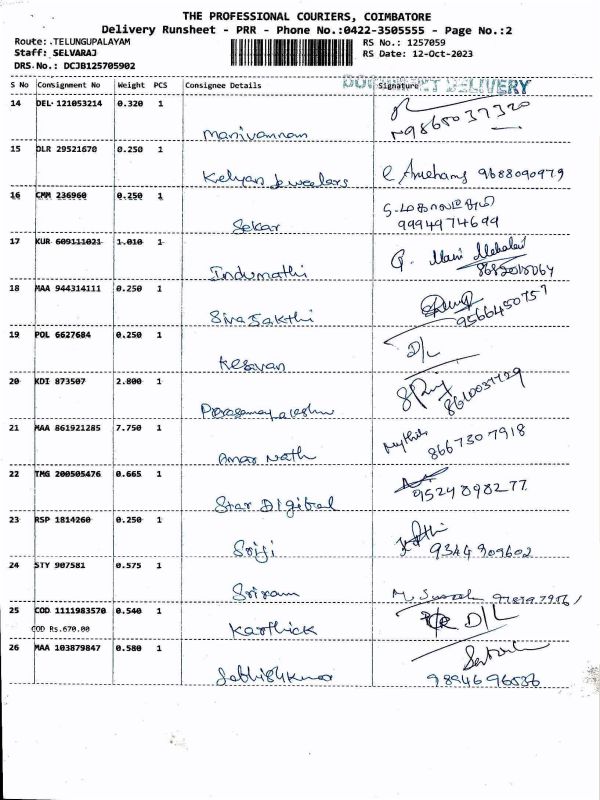 THE PROFESSIONAL COURIERS, COIMBATORE
Delivery Runsheet - PRR - Phone No.:0422-3505555 - Page No.:2
Route: .TELUNGUPALAYAM
RS No.: 1257059
Staff: SELVARAJ
RS Date: 12-Oct-2023
DRS No.: DCJB125705902
DOCUMENT DELIVERY
S No Consignment No Weight PCS Consignee Details Signature
14 DEL 121053214 0.320 1
Manivannan 9865037320
15 DLR 29521670 0.250 1
Kelyan Jewelers 9688090979
16 CMM 236960 0.250 1
Sekar 9994974699
17 KUR 609111021 1.010 1
Indumathi
18 MAA 944314111 0.250 1
Sivasakthi 9566450757
19 POL 6627684 0.250 1
Kesavan D/L
20 KDI 873507 2.800 1
8610037729
21 MAA 861921285 7.750 1
Amar Nath 8667307918
22 TMG 200505476 0.665 1
Star Digital 9524898277
23 RSP 1814260 0.250 1
Sriji 9344909602
24 STY 907581 0.575 1
Sriram
25 COD 1111983570 0.540 1
COD Rs.670.00
Karthick D/L
26 MAA 103879847 0.580 1
9894696536